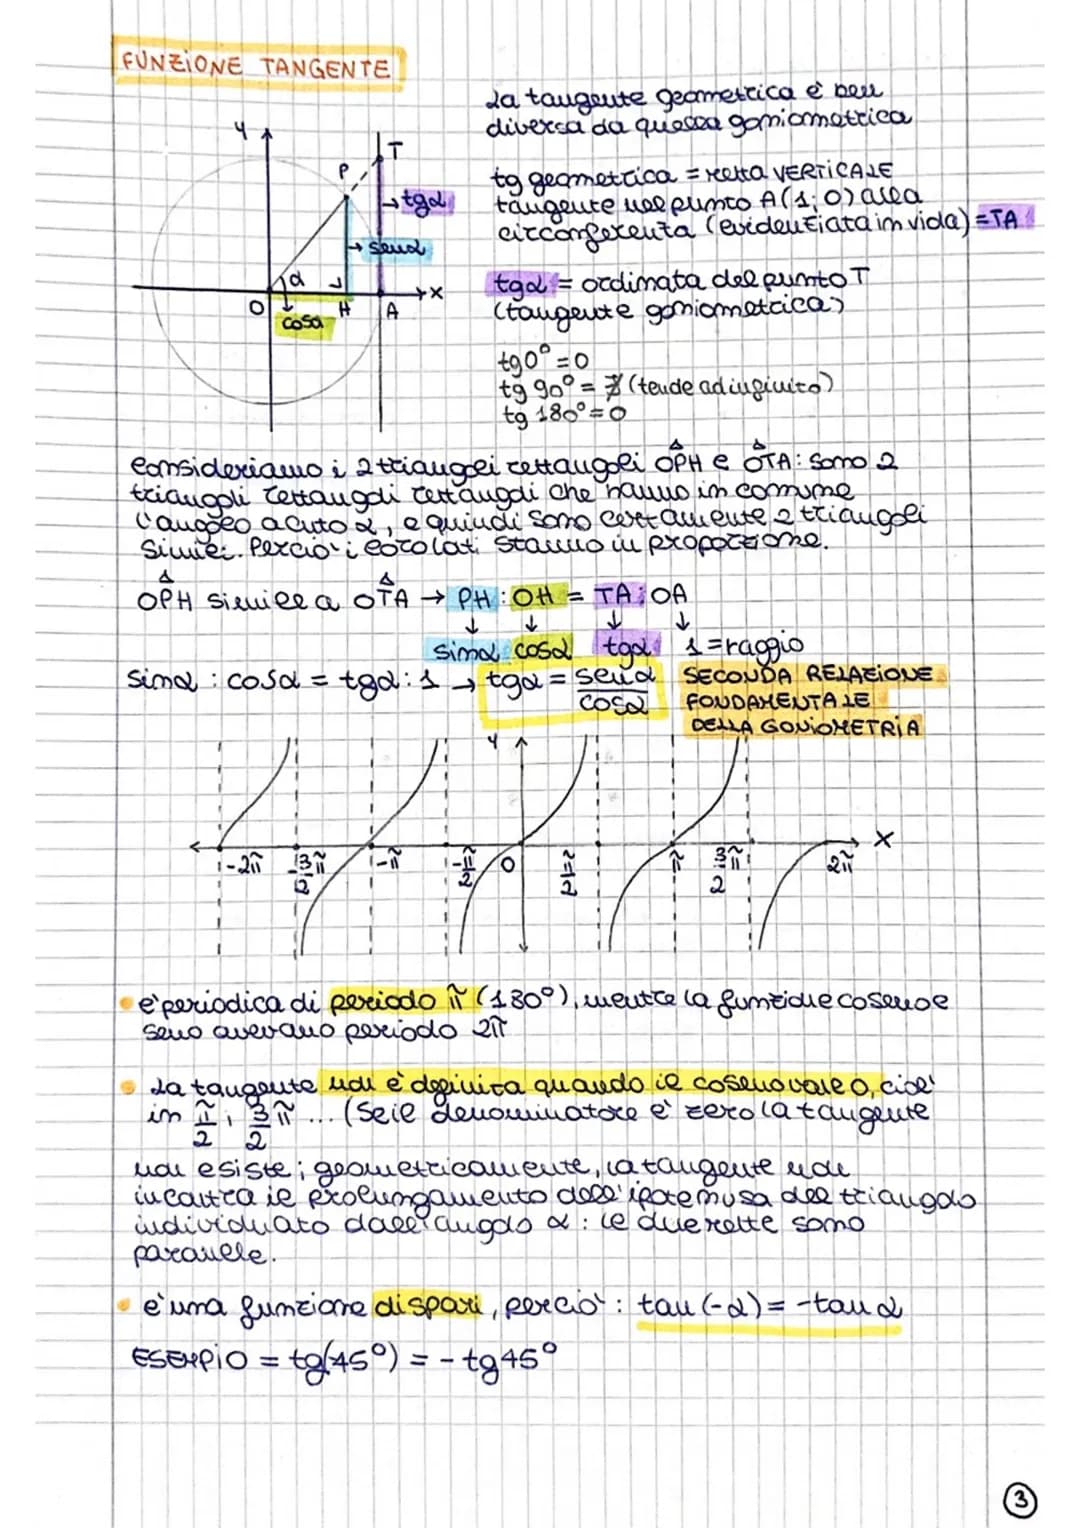 FUNZIONE TANGENTE
La tangente geometrica è ben
diversa da quella goniometrica
tg geometrica = retta VERTICALE
tangente nel punto A(1;0) alla
circonferenza (evidenziata in viola) =TA
tgα = ordinata del punto T
(tangente goniometrica)
y
T
P
→tgα
→ senα
α
O
H
A
x
cosα
tg0° = 0
tg 90° = ∄ (tende ad infinito)
tg 180° = 0
Consideriamo i 2 triangoli rettangoli OPH e OTA: sono 2
triangoli rettangoli rettangoli che hanno in comune
l'angolo acuto α, e quindi sono certamente 2 triangoli
simili. Perciò i loro lati stanno in proporzione.
OPH simile a OTA → PH : OH = TA : OA
↓ ↓ ↓ ↓
sinα cosα tgα 1=raggio
sinα : cosα = tgα : 1 → tgα = senα/cosα
SECONDA RELAZIONE
FONDAMENTALE
DELLA GONIOMETRIA
y
x
-2π -3/2π -π -π/2 0 π/2 π 3/2π 2π
è periodica di periodo π (180°), mentre la funzione coseno e
seno avevano periodo 2π
La tangente non è definita quando il coseno vale 0, cioè
in π/2, 3/2π ... (Se il denominatore è zero la tangente
non esiste; geometricamente, la tangente non
incontra il prolungamento dell'ipotenusa del triangolo
individuato dall'angolo α : le due rette sono
parallele.
è una funzione dispari, perciò : tan(-α) = -tanα
ESEMPIO = tg(45°) = - tg45°
3